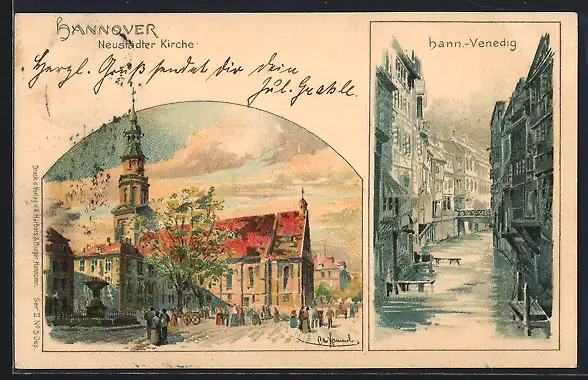 HANNOVER
Neustädter Kirche
Herzl. Gruß sendet dir dein
Jul.
hann.-Venedig
Druck u. Verlag v.
Hannover. Ser. II Nº 5 Dep.